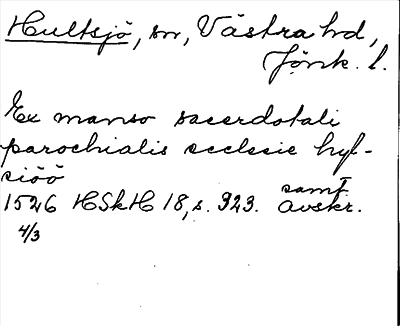 Hultsjö, sn, Västra hd,
Jönk. l.
Ex manso sacerdotali
parochialis ecclesie hyl-
siöö
1526 HSkH 18, s. 923. samt. avskr.
4/3